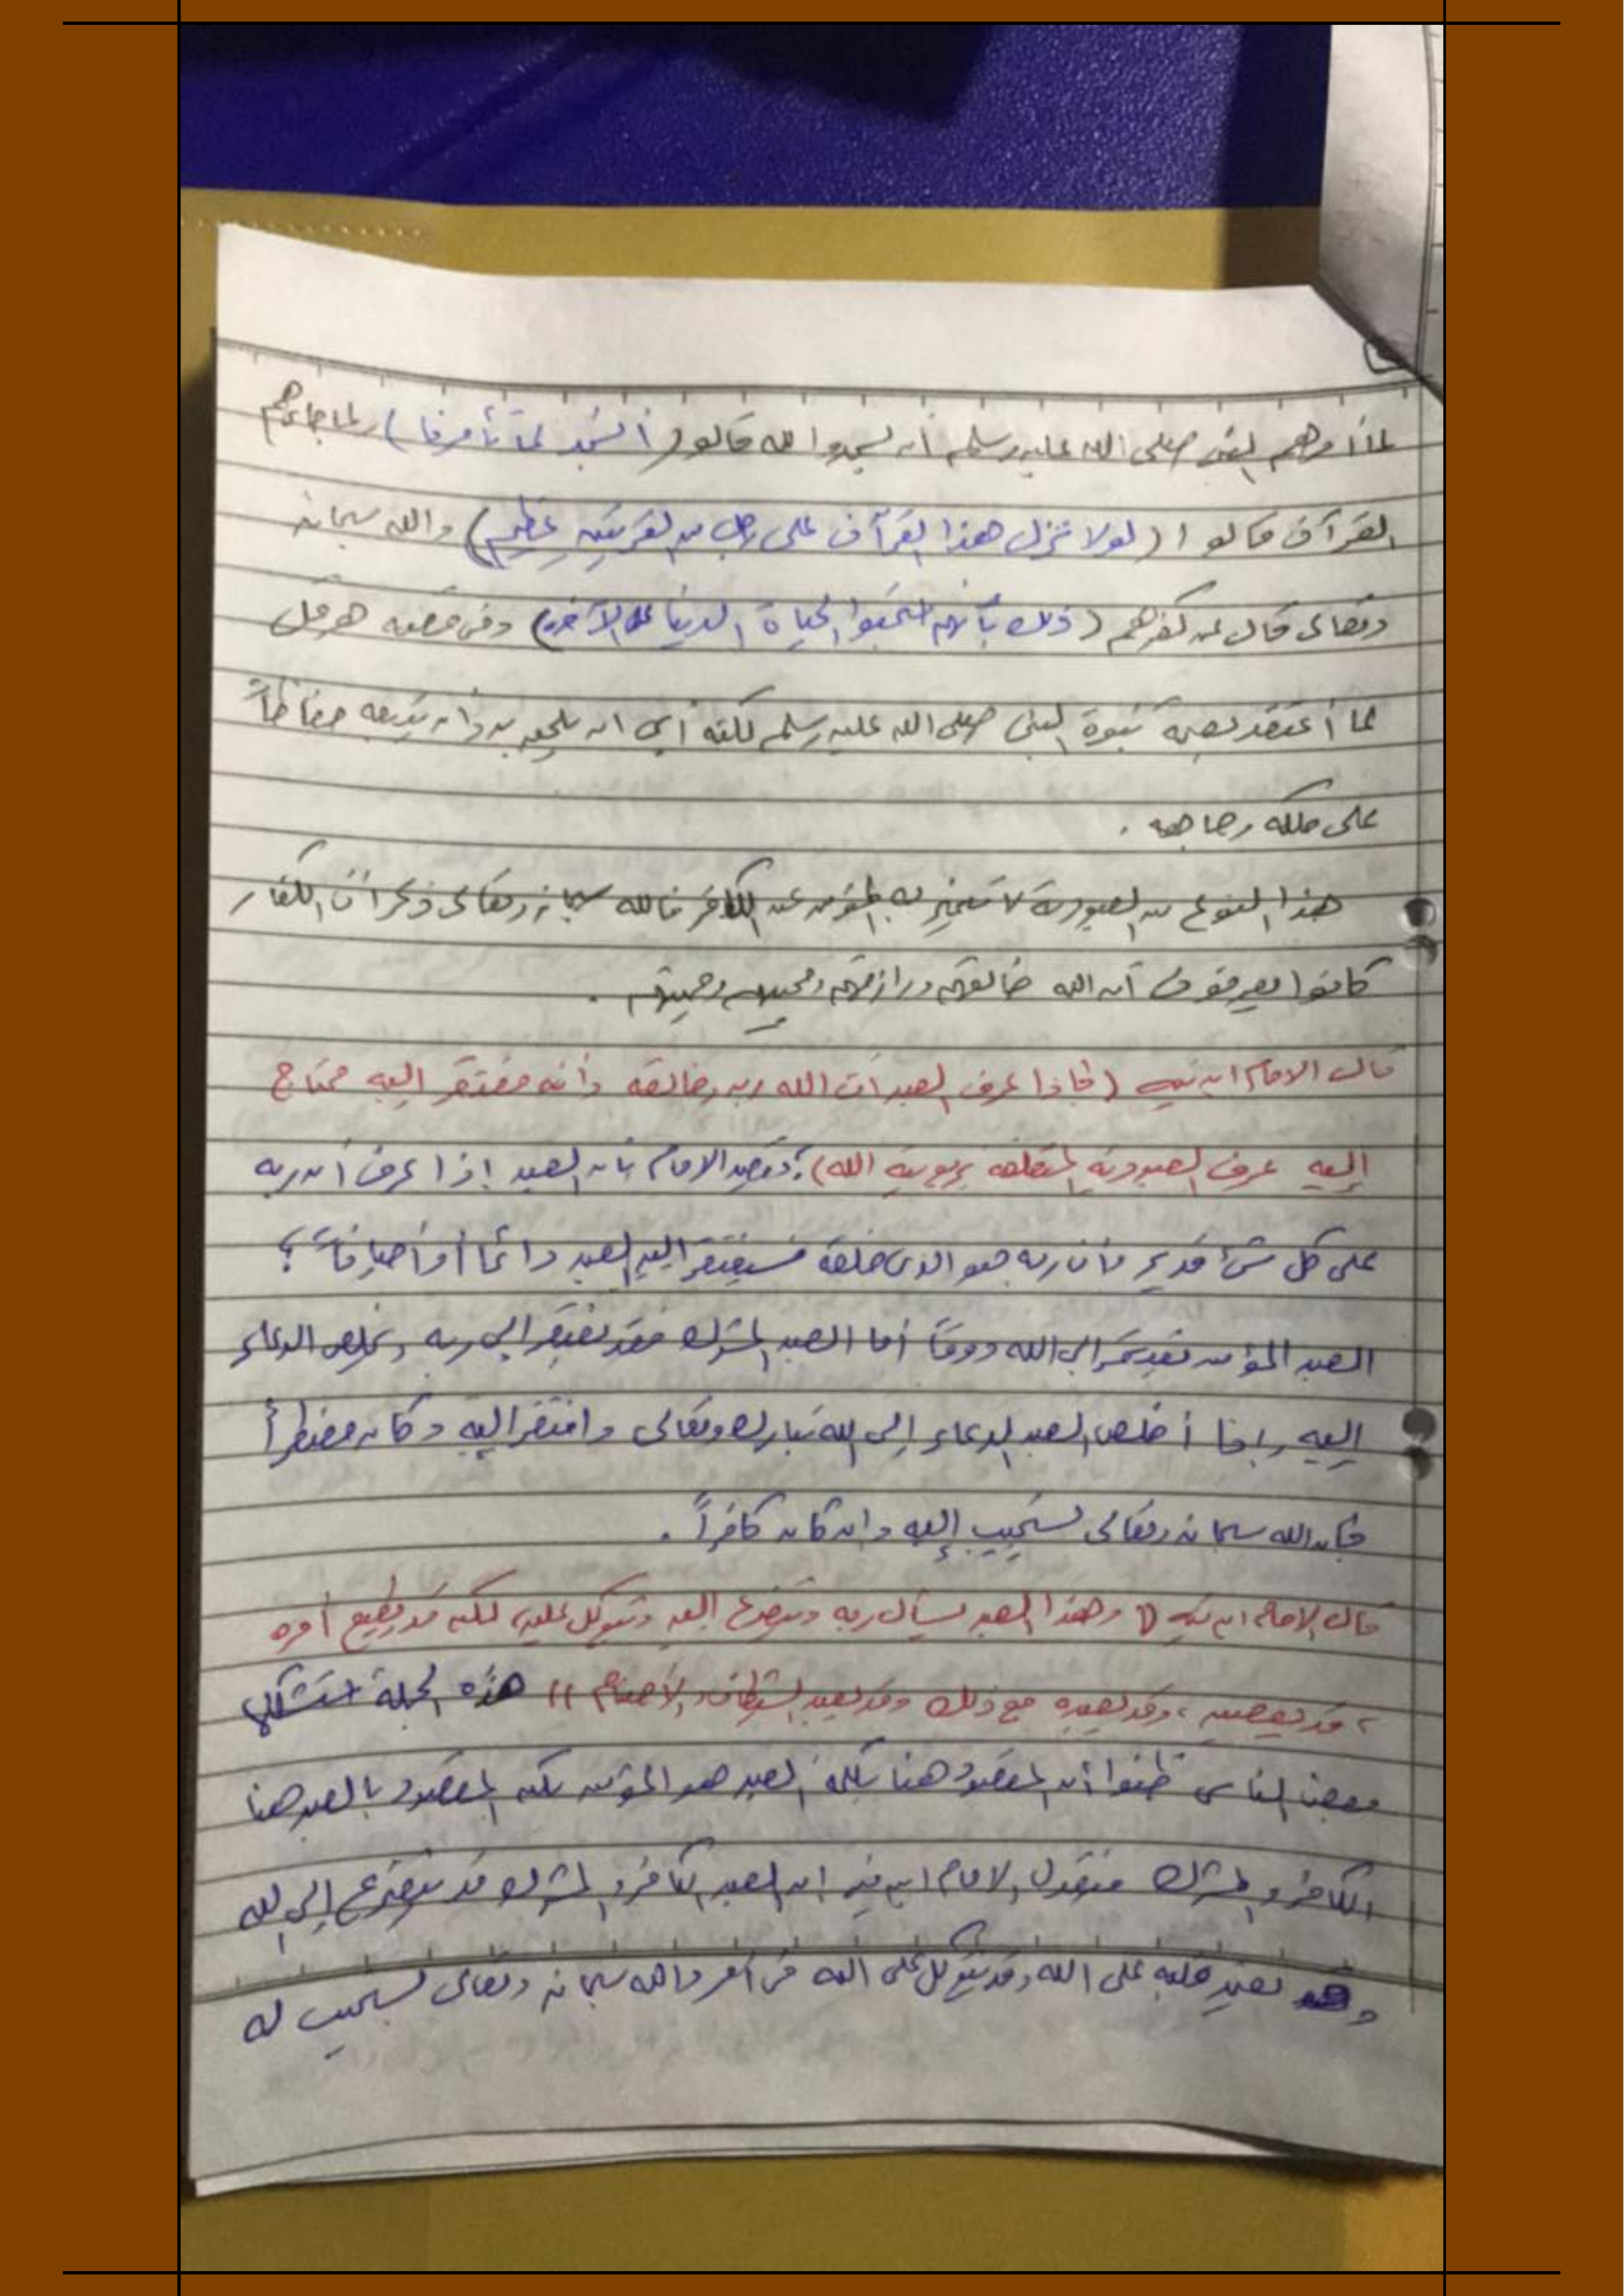 لما أمرهم النبي صلى الله عليه وسلم أن يسجدوا لله قالوا (أنسجد لما تأمرنا) ولما جاءهم
القرآن قالوا (لولا نزل هذا القرآن على رجل من القريتين عظيم) والله سبحانه
وتعالى قال عن كفرهم (ذلك بأنهم استحبوا الحياة الدنيا على الآخرة) وفي قصة هرقل
لما أعتقد نبوة النبي صلى الله عليه وسلم لكنه أبى ان يلحق به وأن يتبعه حفاظاً
على ملكه وجاهه .
هذا النوع من العبودية لا يتميز به المؤمن عن الكافر فالله سبحانه وتعالى ذكر أن الكفار
كانوا يعرفون أن الله خالقهم ورازقهم ومحييهم ومميتهم .
قال الامام ابن تيمية (فإذا عرف العبد أن الله ربه وخالقه وأنه مفتقر إليه محتاج
إليه عرف العبودية المتعلقة بربوبية الله) ؛ ويقصد الامام بأن العبد إذا عرف أن ربه
على كل شيء قدير وأن ربه هو الذي خلقه فسيفتقر إليه العبد دائماً أو أحياناً ؟
العبد المؤمن يفتقر إلى الله دوماً أما العبد المشرك فقد يفتقر إلى ربه ويخلص الدعاء
إليه وإذا أخلص العبد الدعاء إلى الله تبارك وتعالى وافتقر إليه وكان مضطراً
فإن الله سبحانه وتعالى يستجيب إليه وإن كان كافراً .
قال الإمام ابن تيمية (( وهذا العبد يسأل ربه ويتضرع إليه ويتوكل عليه لكن قد يطيع أمره
، وقد يعصيه ، وقد يعبده مع ذلك وقد يعبد الشيطان والأصنام )) هذه الجملة استشكلها
بعض الناس ظنوا أن المقصود هنا بكلمة العبد هو المؤمن لكن المقصود بالعبد هنا
الكافر والمشرك فيقول الامام ابن تيمية ان العبد الكافر والمشرك قد يتضرع إلى الله
وقد يعتمد قلبه على الله وقد يتوكل على الله في أمر والله سبحانه وتعالى يستجيب له